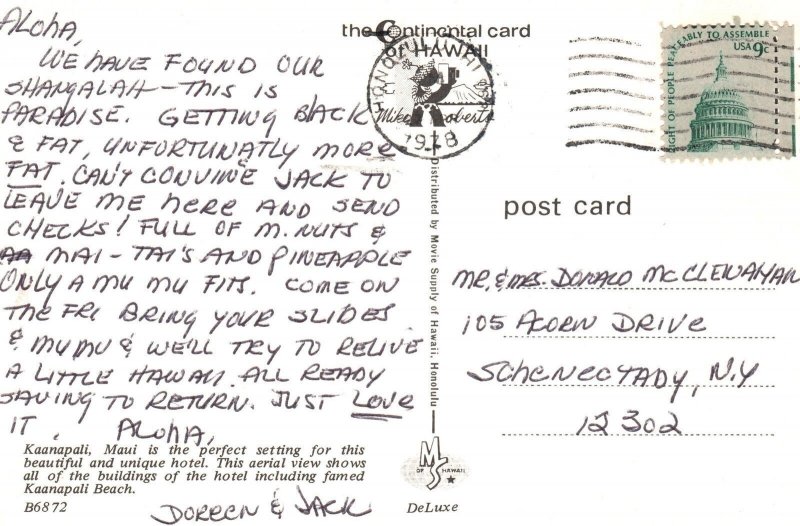 ALOHA,
WE HAVE FOUND OUR
SHANGALAH - THIS IS
PARADISE. GETTING BLACK
& FAT, UNFORTUNATLY MORE
FAT. CAN'T CONVINE JACK TO
LEAVE ME HERE AND SEND
CHECKS! FULL OF M. NUTS &
MAI-TAI'S AND PINEAPPLE
ONLY A MU MU FITS. COME ON
THE FRI BRING YOUR SLIDES
& MUMU & WE'LL TRY TO RELIVE
A LITTLE HAWAII. ALL READY
SAVING TO RETURN. JUST LOVE
IT. ALOHA,
DOREEN & JACK
Kaanapali, Maui is the perfect setting for this
beautiful and unique hotel. This aerial view shows
all of the buildings of the hotel including famed
Kaanapali Beach.
B6872
DeLuxe
the Continental card
OF HAWAII
HONOLULU, HI
Mike Roberts
1978
Distributed by Movie Supply of Hawaii, Honolulu
MS
OF HAWAII
RIGHT OF PEOPLE PEACEABLY TO ASSEMBLE
USA 9c
post card
MR. & MRS. DONALD MCCLENAHAN
105 ACORN DRIVE
SCHENECTADY, N.Y
12302